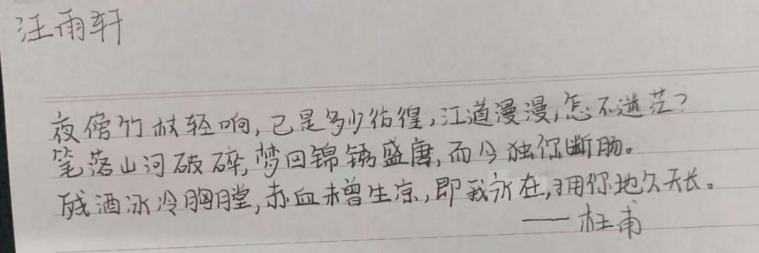 汪雨轩
夜傍竹林轻响,已是多少彷徨,江道漫漫,怎不迷茫?
笔落山河破碎,梦回锦锈盛唐,而今独你断肠。
残酒冰冷胸膛,赤血未曾生凉,即我永在,拥你地久天长。
——杜甫